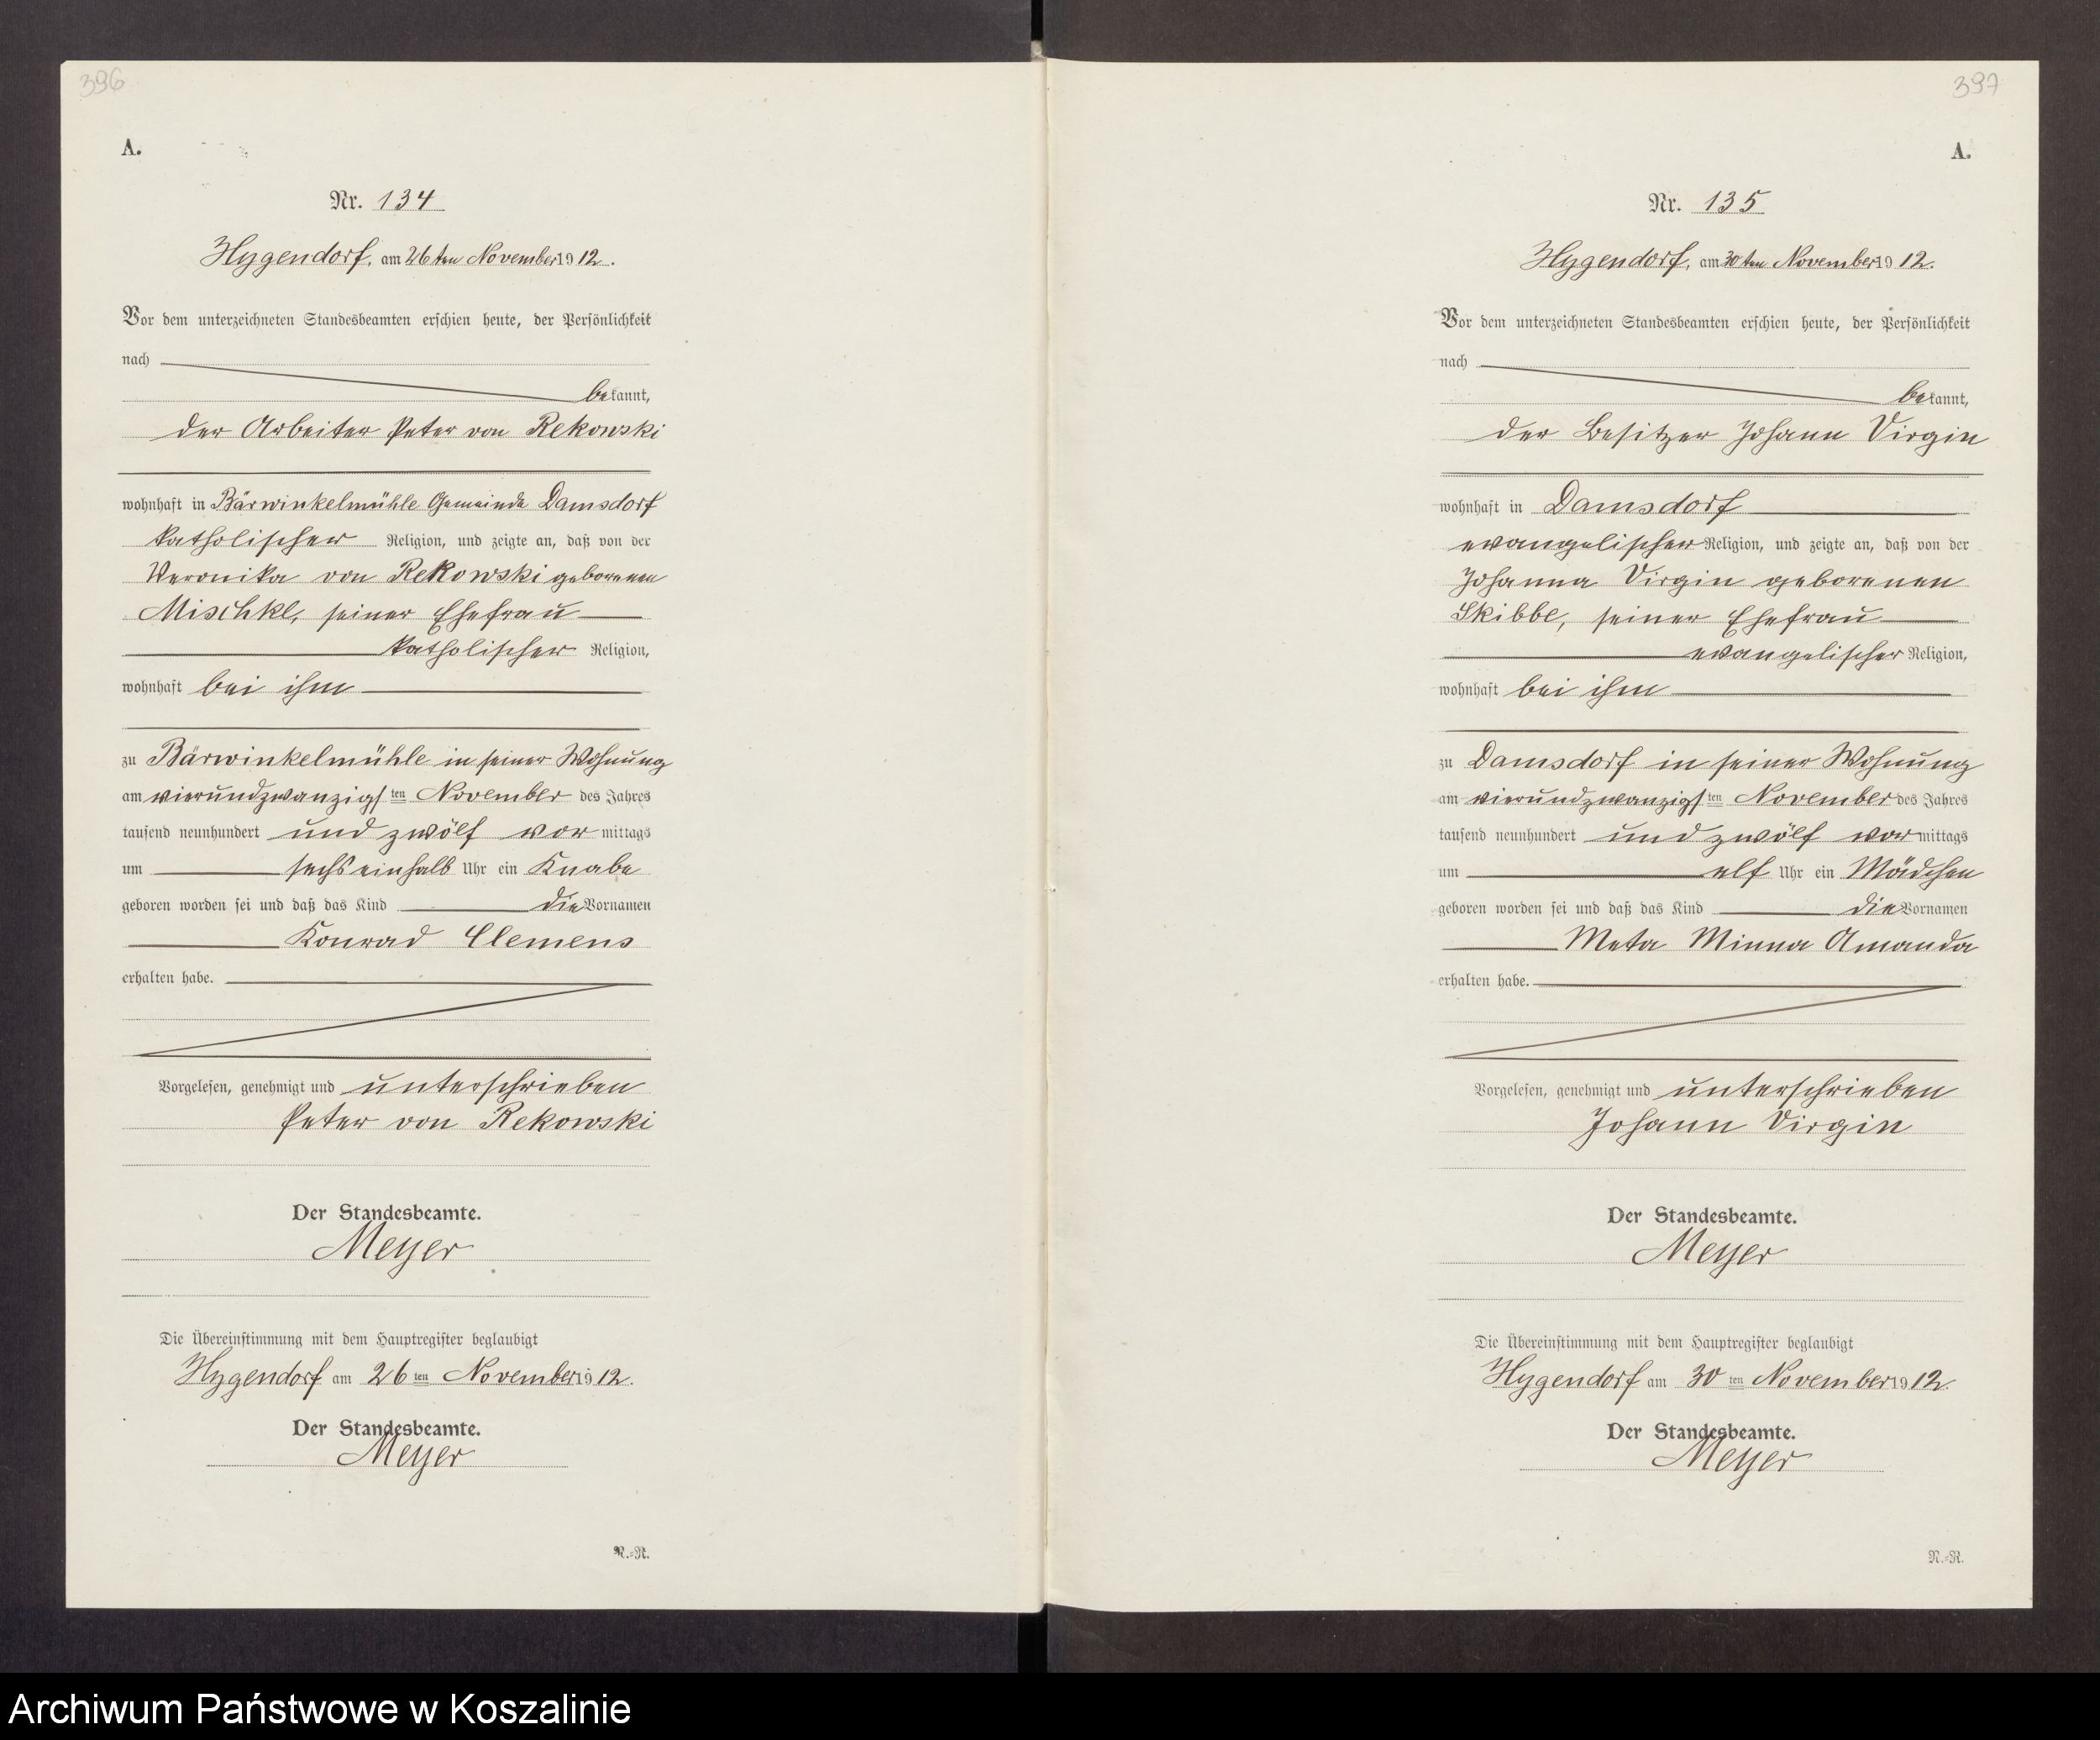 396
A.
Nr. 134
Hygendorf, am 26ten November 1912.
Vor dem unterzeichneten Standesbeamten erschien heute, der Persönlichkeit
nach
bekannt,
der Arbeiter Peter von Rekowski
wohnhaft in Bärwinkelmühle Gemeinde Damsdorf
katholischer Religion, und zeigte an, daß von der
Veronika von Rekowski geborenen
Mischke, seiner Ehefrau
katholischer Religion,
wohnhaft bei ihm
zu Bärwinkelmühle in seiner Wohnung
am vierundzwanzigsten November des Jahres
tausend neunhundert und zwölf vormittags
um sechseinhalb Uhr ein Knabe
geboren worden sei und daß das Kind die Vornamen
Konrad Clemens
erhalten habe.
Vorgelesen, genehmigt und unterschrieben
Peter von Rekowski
Der Standesbeamte.
Meyer
Die Übereinstimmung mit dem Hauptregister beglaubigt
Hygendorf am 26ten November 1912.
Der Standesbeamte.
Meyer
N.-R.
397
A.
Nr. 135
Hygendorf, am 30ten November 1912.
Vor dem unterzeichneten Standesbeamten erschien heute, der Persönlichkeit
nach
bekannt,
der Besitzer Johann Virgin
wohnhaft in Damsdorf
evangelischer Religion, und zeigte an, daß von der
Johanna Virgin geborenen
Skibbe, seiner Ehefrau
evangelischer Religion,
wohnhaft bei ihm
zu Damsdorf in seiner Wohnung
am vierundzwanzigsten November des Jahres
tausend neunhundert und zwölf vormittags
um elf Uhr ein Mädchen
geboren worden sei und daß das Kind die Vornamen
Meta Minna Amanda
erhalten habe.
Vorgelesen, genehmigt und unterschrieben
Johann Virgin
Der Standesbeamte.
Meyer
Die Übereinstimmung mit dem Hauptregister beglaubigt
Hygendorf am 30ten November 1912.
Der Standesbeamte.
Meyer
N.-R.
Archiwum Państwowe w Koszalinie